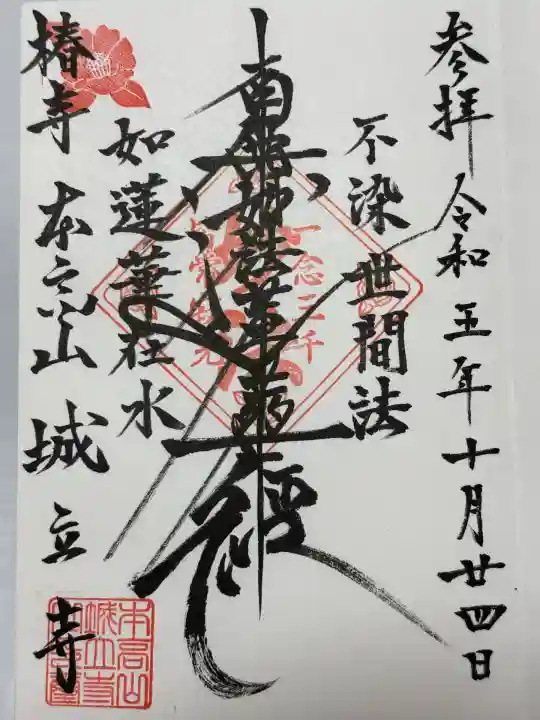 参拝 令和五年十月廿四日
不染世間法
南無妙法蓮華経
一念三千
如蓮華在水
椿寺 本高山 城立寺
本高山
城立寺